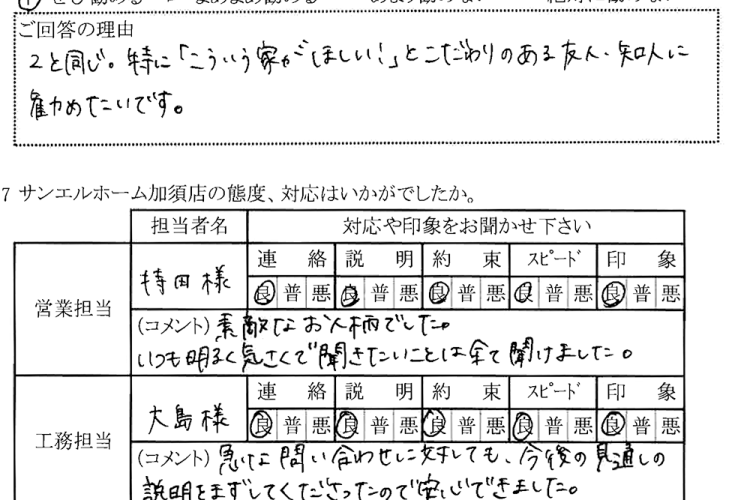 ご回答の理由
2と同じ。特に「こういう家がほしい!」とこだわりのある友人・知人に
勧めたいです。
7 サンエルホーム加須店の態度、対応はいかがでしたか。
担当者名 対応や印象をお聞かせ下さい
営業担当 持田様 連絡 説明 約束 スピード 印象
良 普 悪 良 普 悪 良 普 悪 良 普 悪 良 普 悪
(コメント) 素敵なお人柄でした。
いつも明るく気さくで聞きたいことは全て聞けました。
工務担当 大島様 連絡 説明 約束 スピード 印象
良 普 悪 良 普 悪 良 普 悪 良 普 悪 良 普 悪
(コメント) 急な問い合わせに対しても、今後の見通しの
説明をまずしてくださったので安心できました。